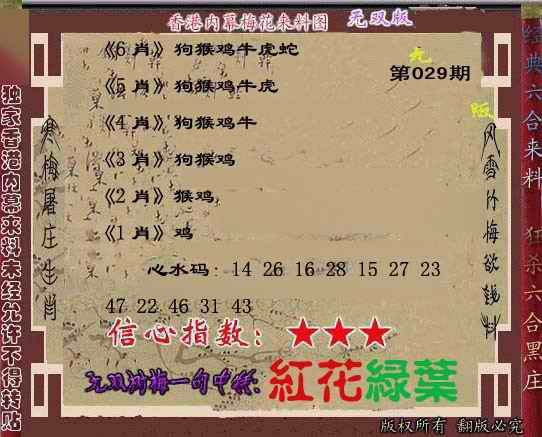 香港内幕梅花来料图 无双版
经典六合来料 狂杀六合黑庄
独家香港内幕来料未经允许不得转贴
寒梅屠庄生肖
《6 肖》 狗猴鸡牛虎蛇
无
第029期
《5 肖》 狗猴鸡牛虎
版
《4 肖》 狗猴鸡牛
《3 肖》 狗猴鸡
《2 肖》 猴鸡
《1 肖》 鸡
心水码: 14 26 16 28 15 27 23
47 22 46 31 43
信心指数: ★★★
一句中特: 紅花綠葉
版权所有 翻版必究